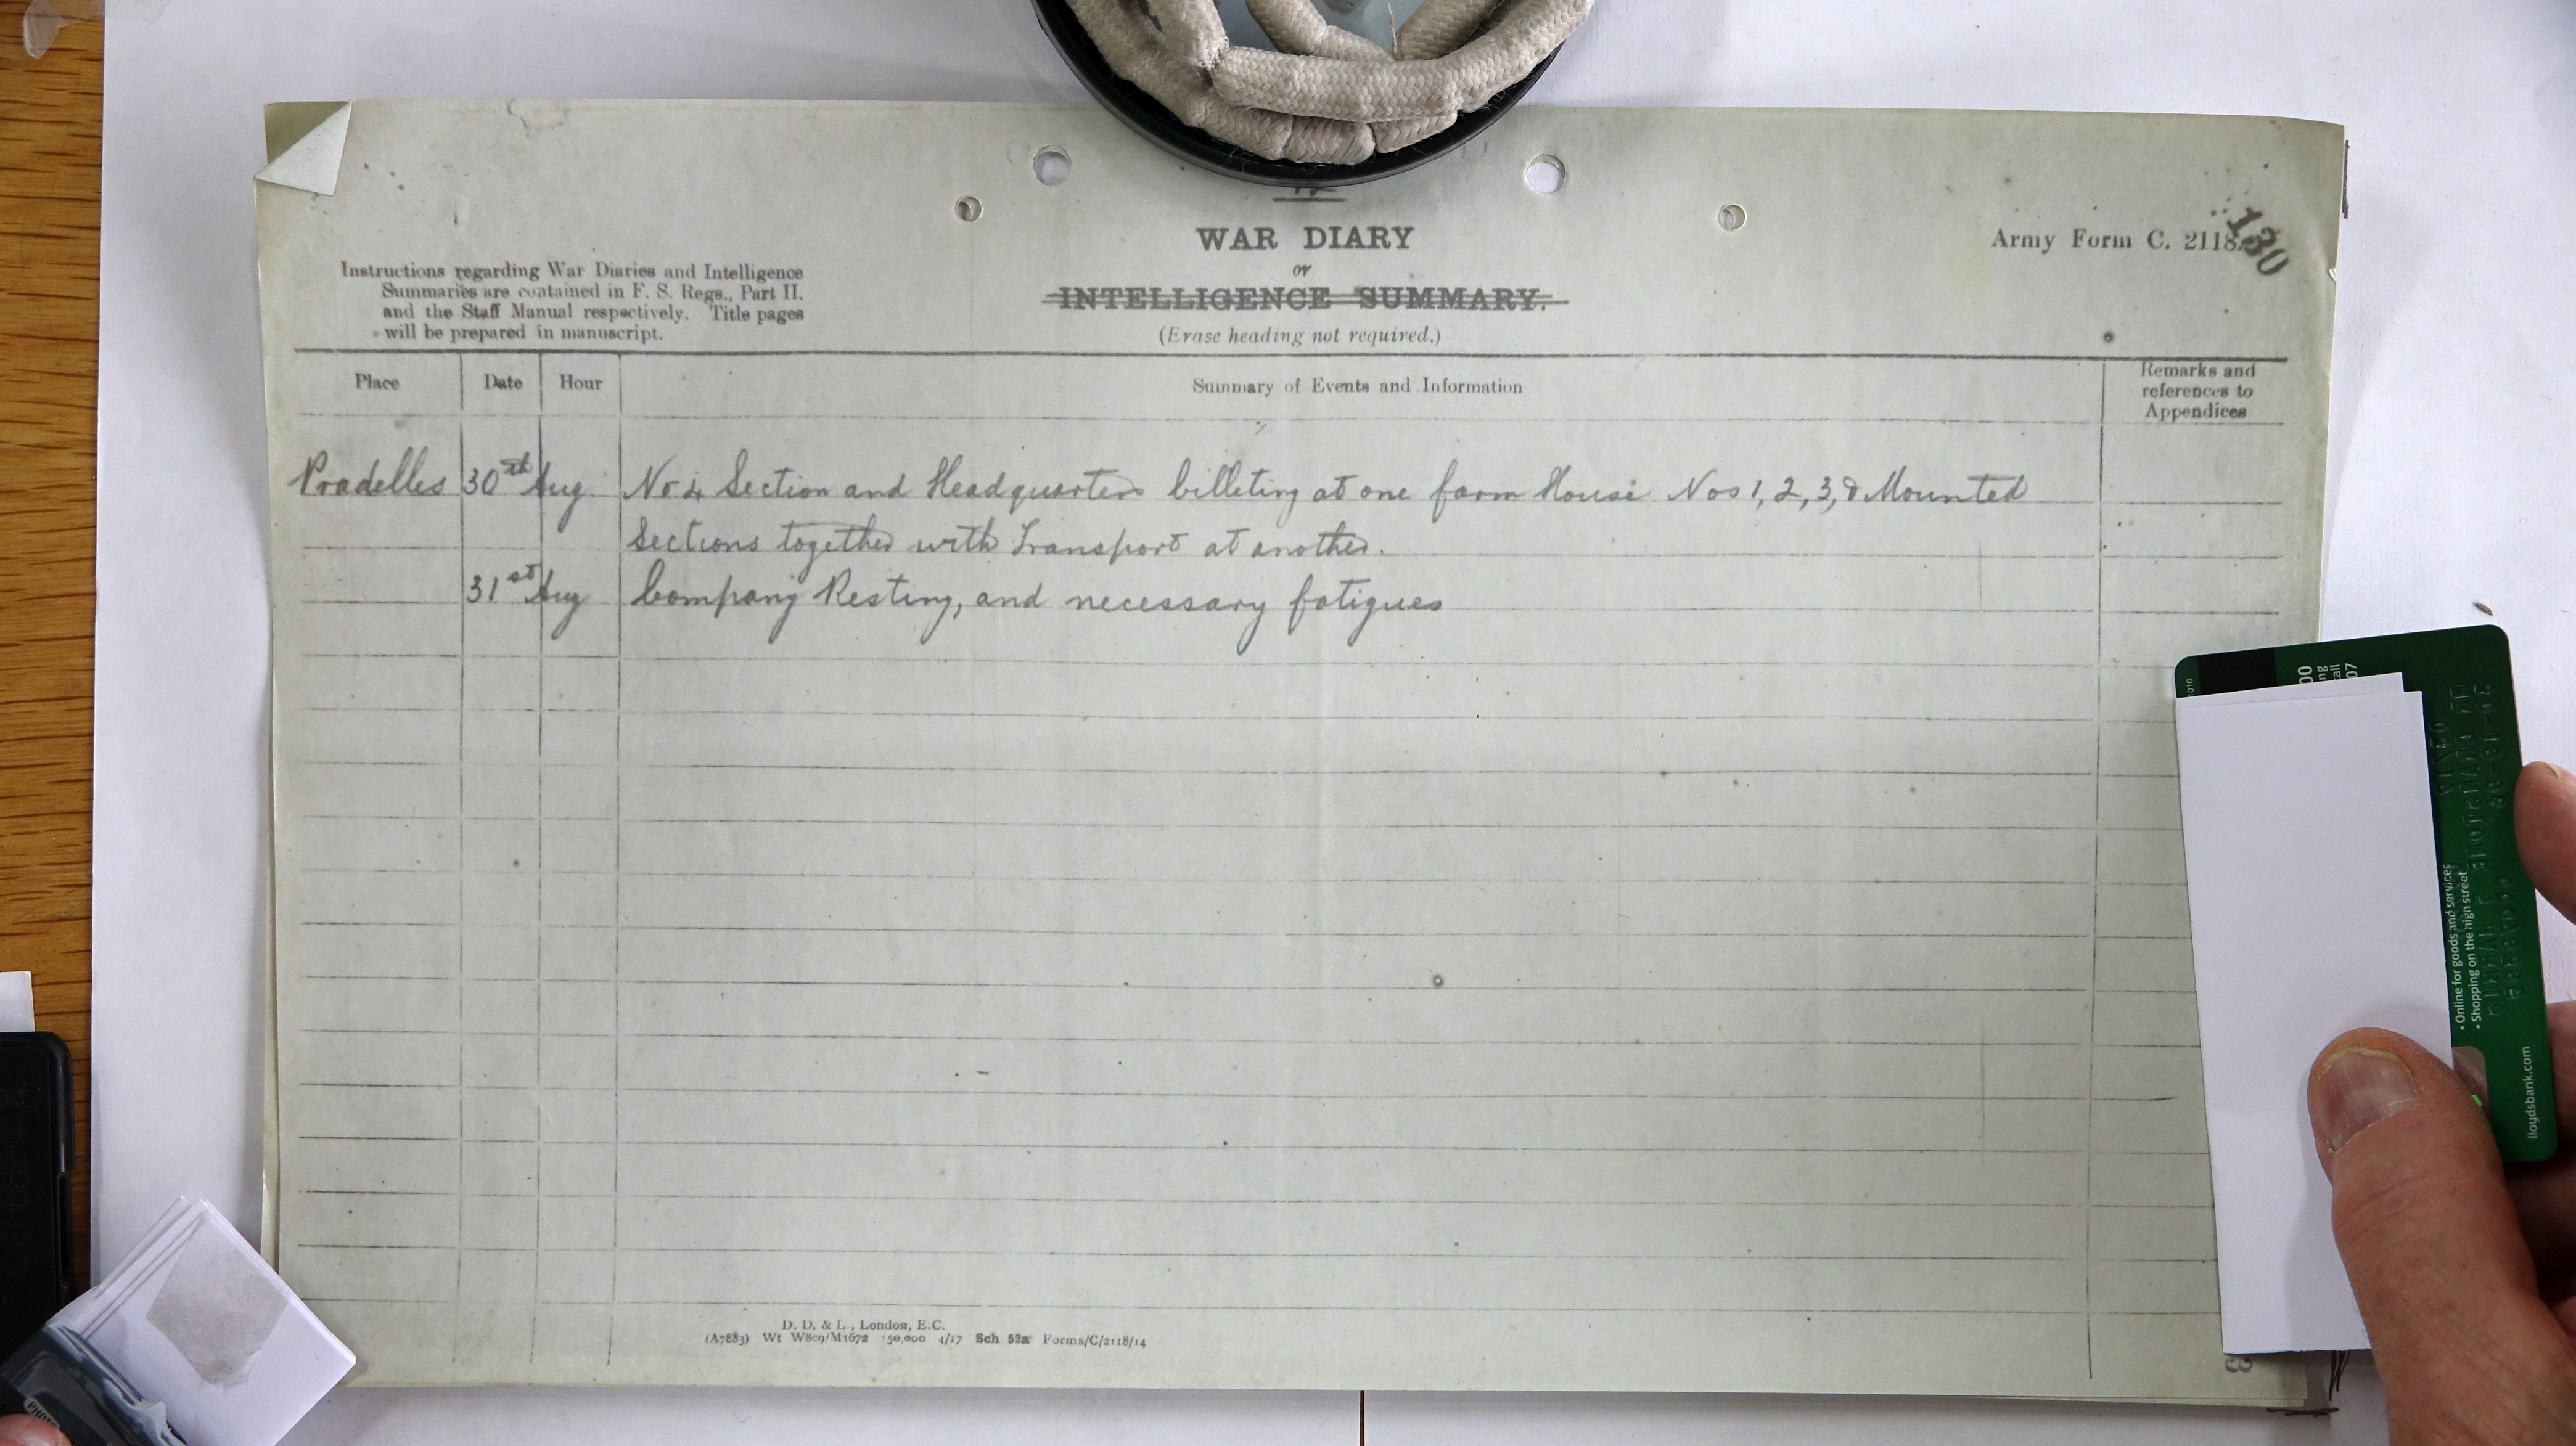 WAR DIARY
or
INTELLIGENCE SUMMARY.
(Erase heading not required.)
Army Form C. 2118.
130
Instructions regarding War Diaries and Intelligence
Summaries are contained in F. S. Regs., Part II.
and the Staff Manual respectively. Title pages
will be prepared in manuscript.
Place Date Hour Summary of Events and Information Remarks and
references to
Appendices
Pradelles 30th Aug. No 4 Section and Headquarters billeting at one farm House Nos 1, 2, 3, & Mounted
Sections together with Transport at another.
31st Aug Company Resting, and necessary fatigues
D. D. & L., London, E.C.
(A7883) Wt W809/M1672 350,000 4/17 Sch 52a Forms/C/2118/14
• Online for goods and services
• Shopping on the high street
lloydsbank.com